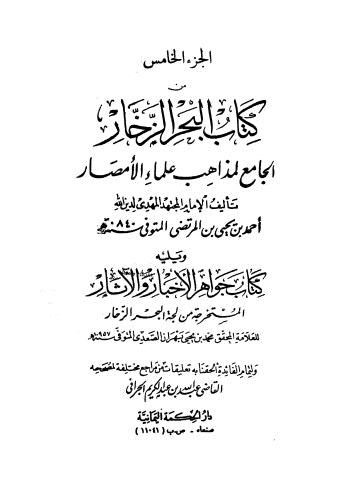 الجزء الخامس
من
كتاب البحر الزخار
الجامع لمذاهب علماء الأمصار
تأليف الإمام المجتهد المهدي لدين الله
أحمد بن يحيى بن المرتضى المتوفى سنة ٨٤٠ هـ
ويليه
كتاب جواهر الأخبار والآثار
المستخرجة من لجة البحر الزخار
للعلامة المحقق محمد بن يحيى بهران الصعدي المتوفى سنة ٩٥٧ هـ
ولتمام الفائدة ألحقنا به تعليقات من مراجع مختلفة لمصححه
القاضي عبد الله بن عبد الكريم الجرافي
دار الحكمة اليمانية
صنعاء - ص.ب (١١٠٤١)